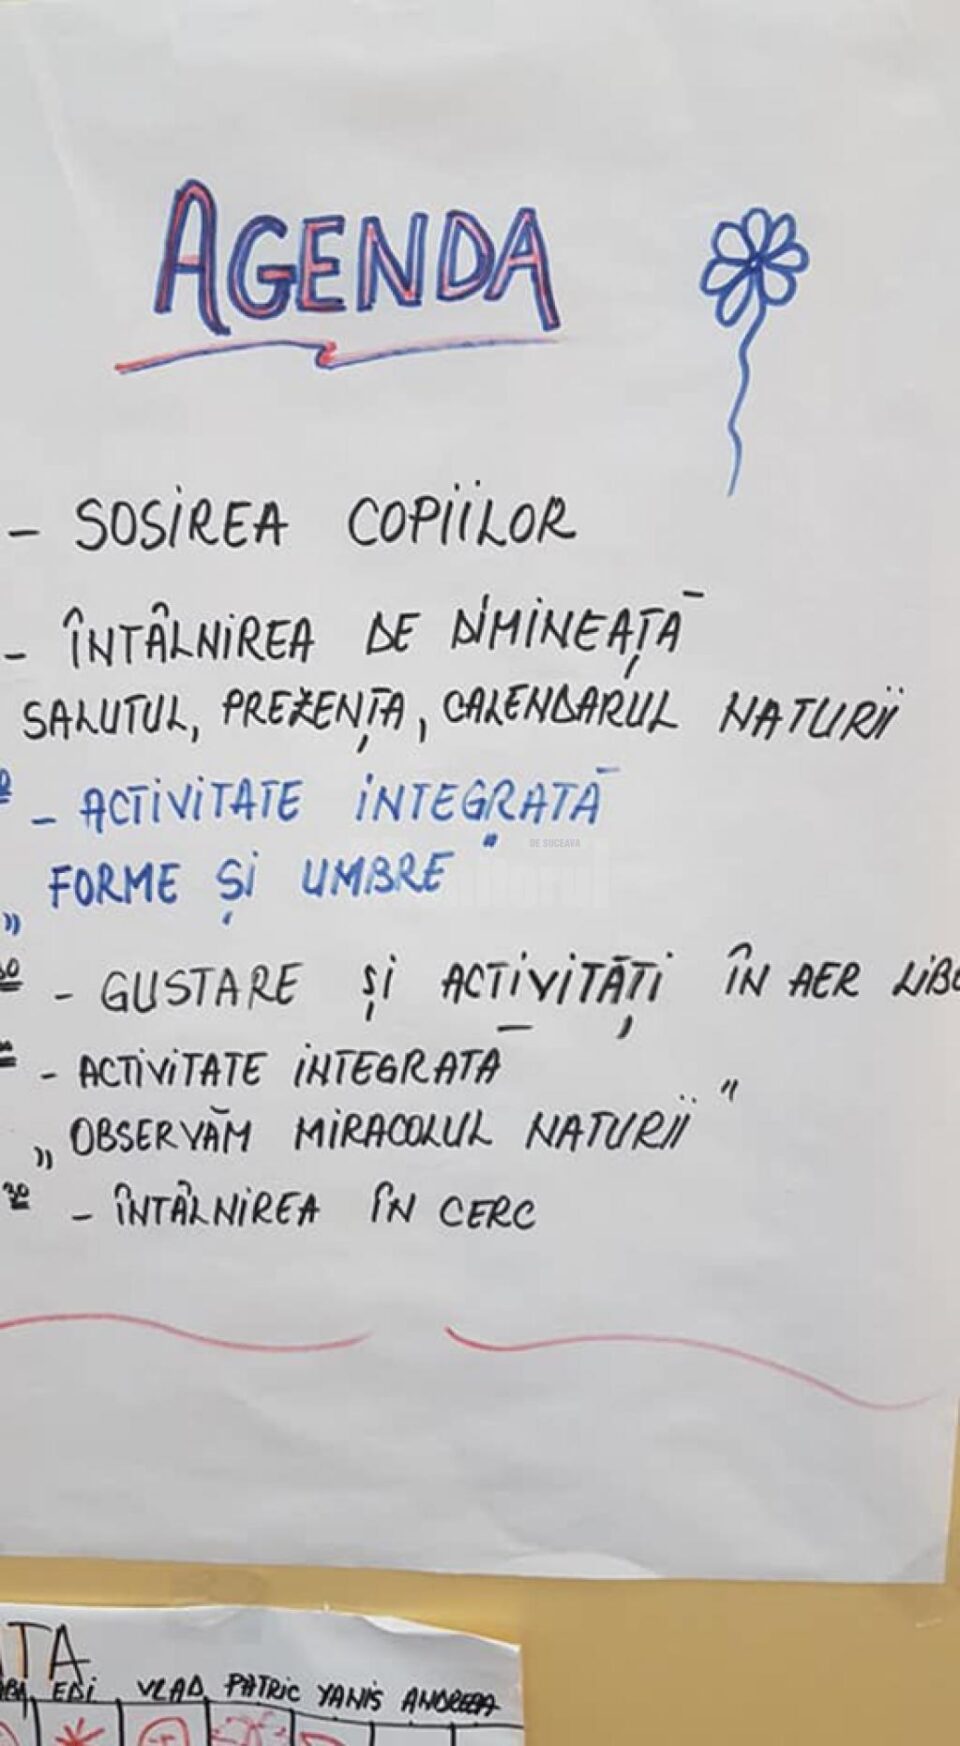 AGENDA
- SOSIREA COPIILOR
- ÎNTÂLNIREA DE DIMINEAȚĂ
SALUTUL, PREZENȚA, CALENDARUL NATURII
- ACTIVITATE INTEGRATĂ
„ FORME ȘI UMBRE "
DE SUCEAVA
30 - GUSTARE ȘI ACTIVITĂȚI ÎN AER
- ACTIVITATE INTEGRATĂ
„ OBSERVĂM MIRACOLUL NATURII "
30 - ÎNTÂLNIREA ÎN CERC
EDI VLAD PATRIC YANIS ANDREEA